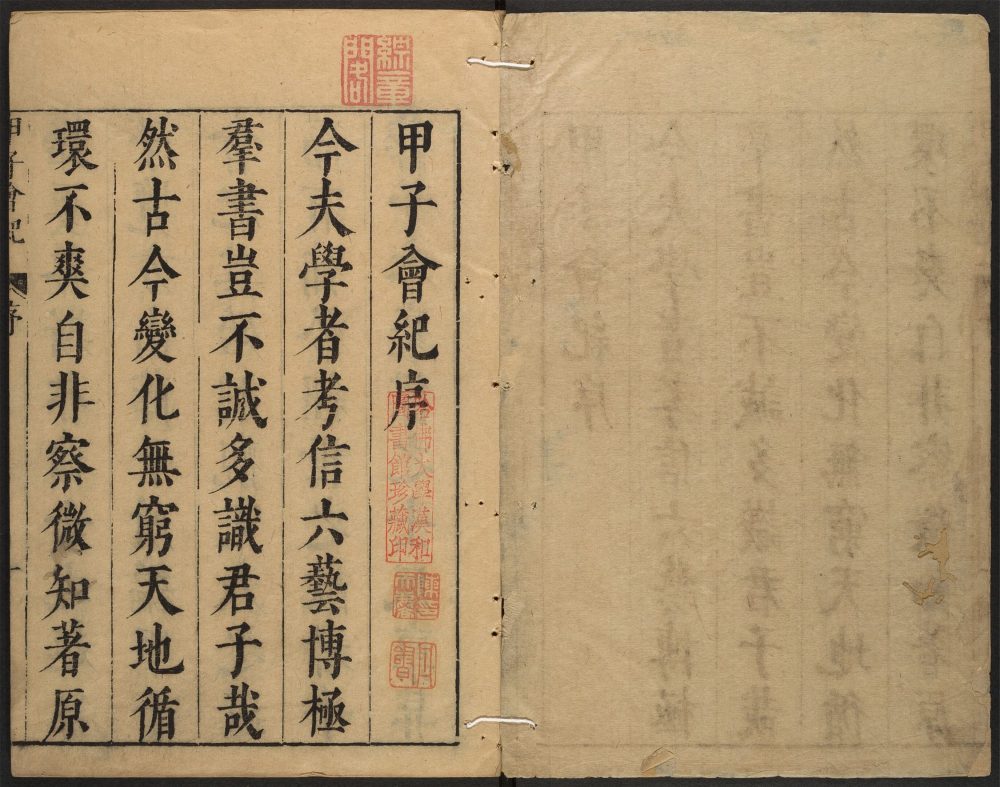 甲子會紀序
今夫學者考信六藝博極
羣書豈不誠多識君子哉
然古今變化無窮天地循
環不爽自非察微知著原
甲子會紀
序
一
哈佛大學漢和
圖書館珍藏印